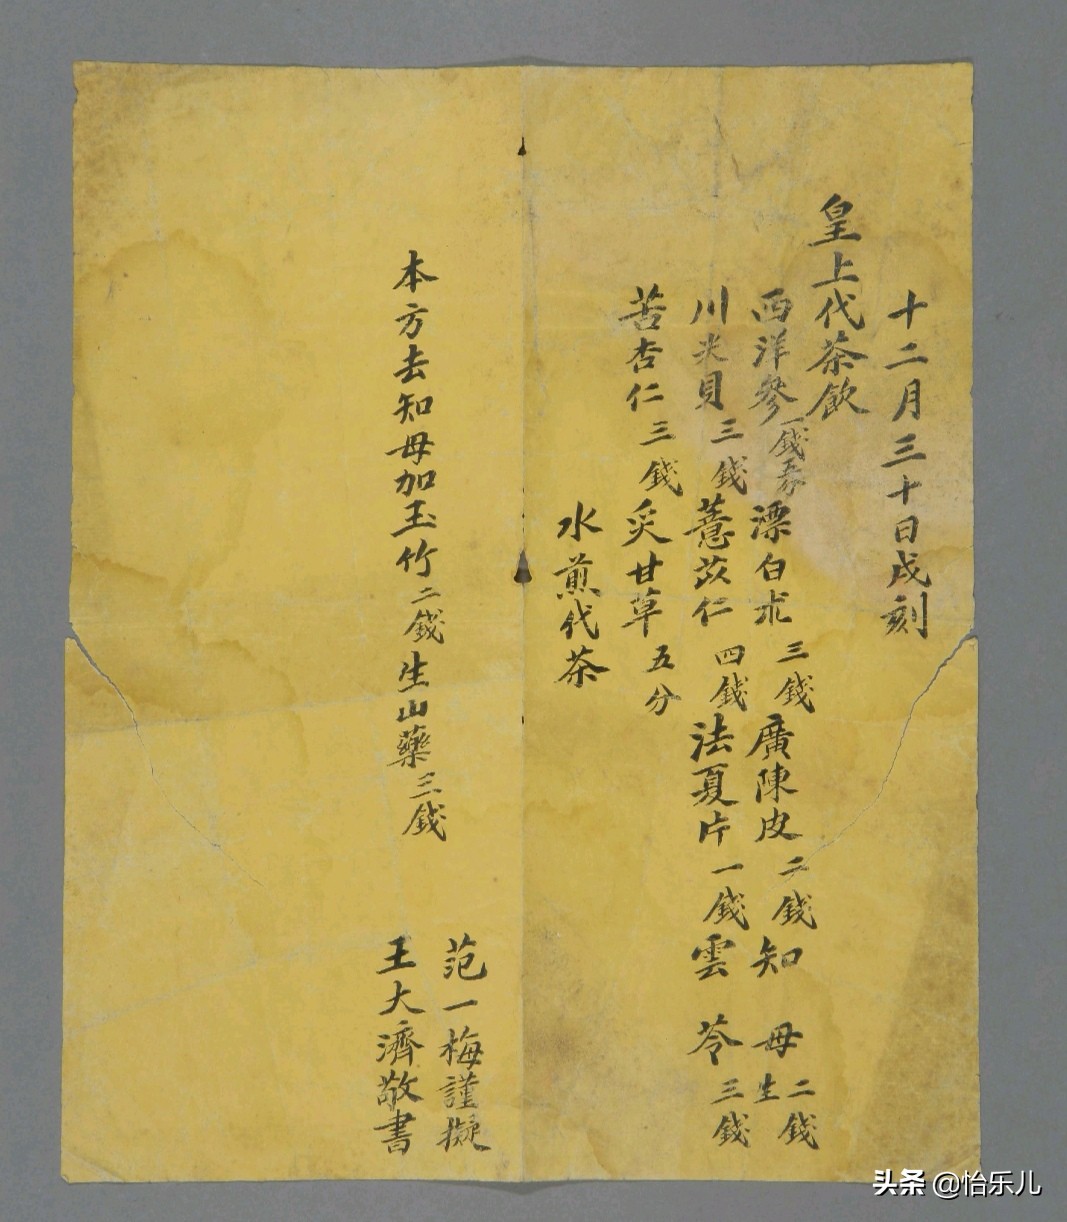 十二月三十日戌刻
皇上代茶飲
西洋參一錢五分漂白朮三錢廣陳皮二錢知母生二錢
川尖貝三錢薏苡仁四錢法夏片一錢雲苓三錢
苦杏仁三錢炙甘草五分
水煎代茶
范一梅謹擬
本方去知母加玉竹二錢生山藥三錢
王大濟敬書
头条 @怡乐儿